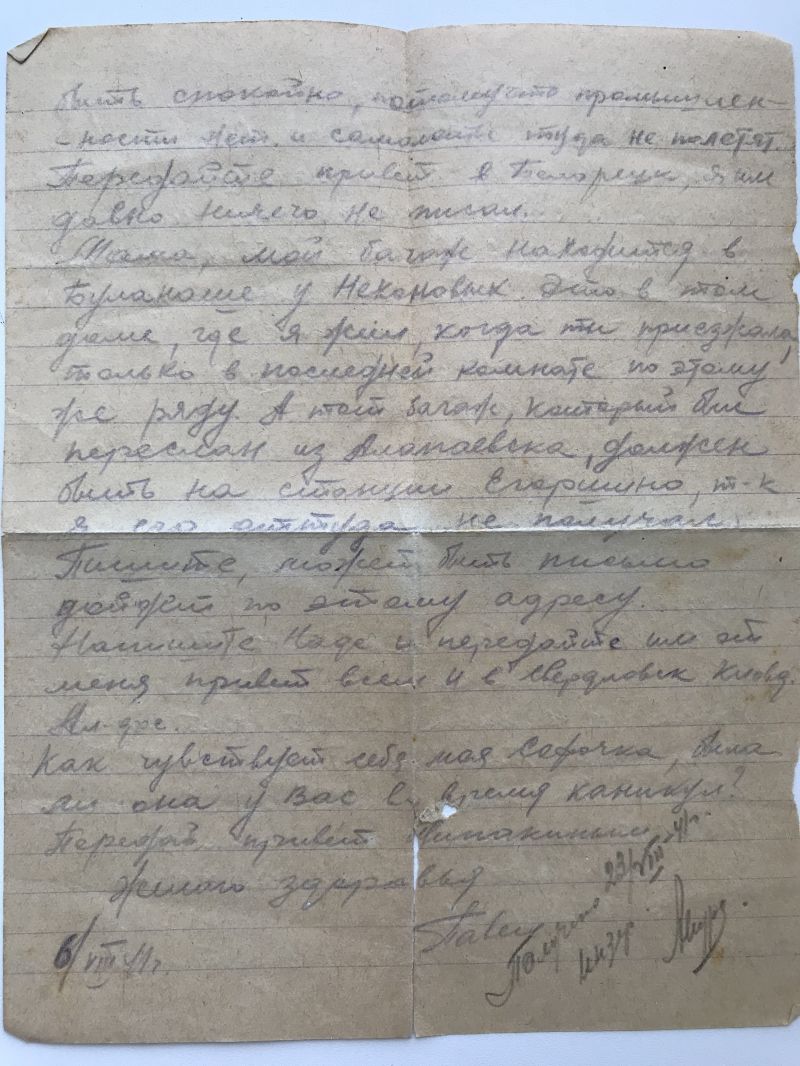 быть спокойно, потому что промышлен-
-ности нет и самолеты туда не полетят.
Передайте привет в Белорецк, я им
давно ничего не писал.
Мама, мой багаж находится в
Буланаше у Неконовых. Это в том
доме, где я жил, когда ты приезжала,
только в последней комнате по этому
же ряду. А тот багаж, который был
переслан из Алапаевска, должен
быть на станции Егоршино, т-к
я его оттуда не получал.
Пишите, может быть письмо
дойдет по этому адресу.
Напишите Наде и передайте им от
меня привет всем и в Свердловск Клавд.
Ал-др.
Как чувствует себя моя Сарочка, была
ли она у Вас во время каникул?
Передай привет
Желаю здоровья
Павел
6/VIII 41г.
Получено 23/VIII-41г.